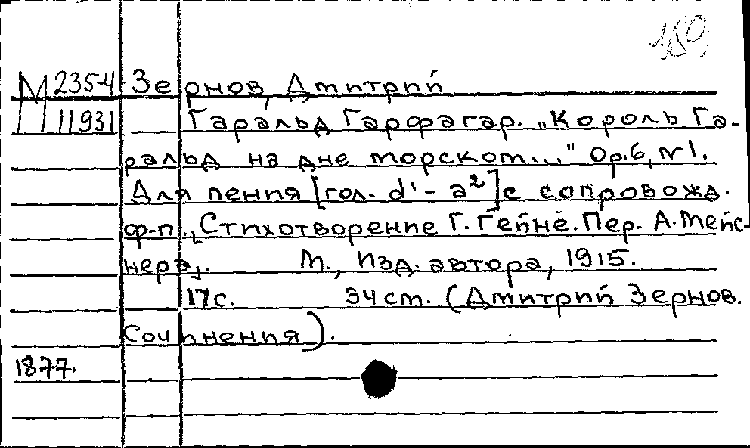 180
М 2354 Зернов, Дмитрий
11931 Гаральд Гарфагар. „Король Га-
ральд на дне морском..." Op.6, №1.
Для пения [гол. d¹-a²] с сопровожд.
ф-п., Стихотворение Г. Гейне. Пер. А. Мейс-
нера,. М., Изд. автора, 1915.
17с. 34cm. (Дмитрий Зернов.
Сочинения).
1877.